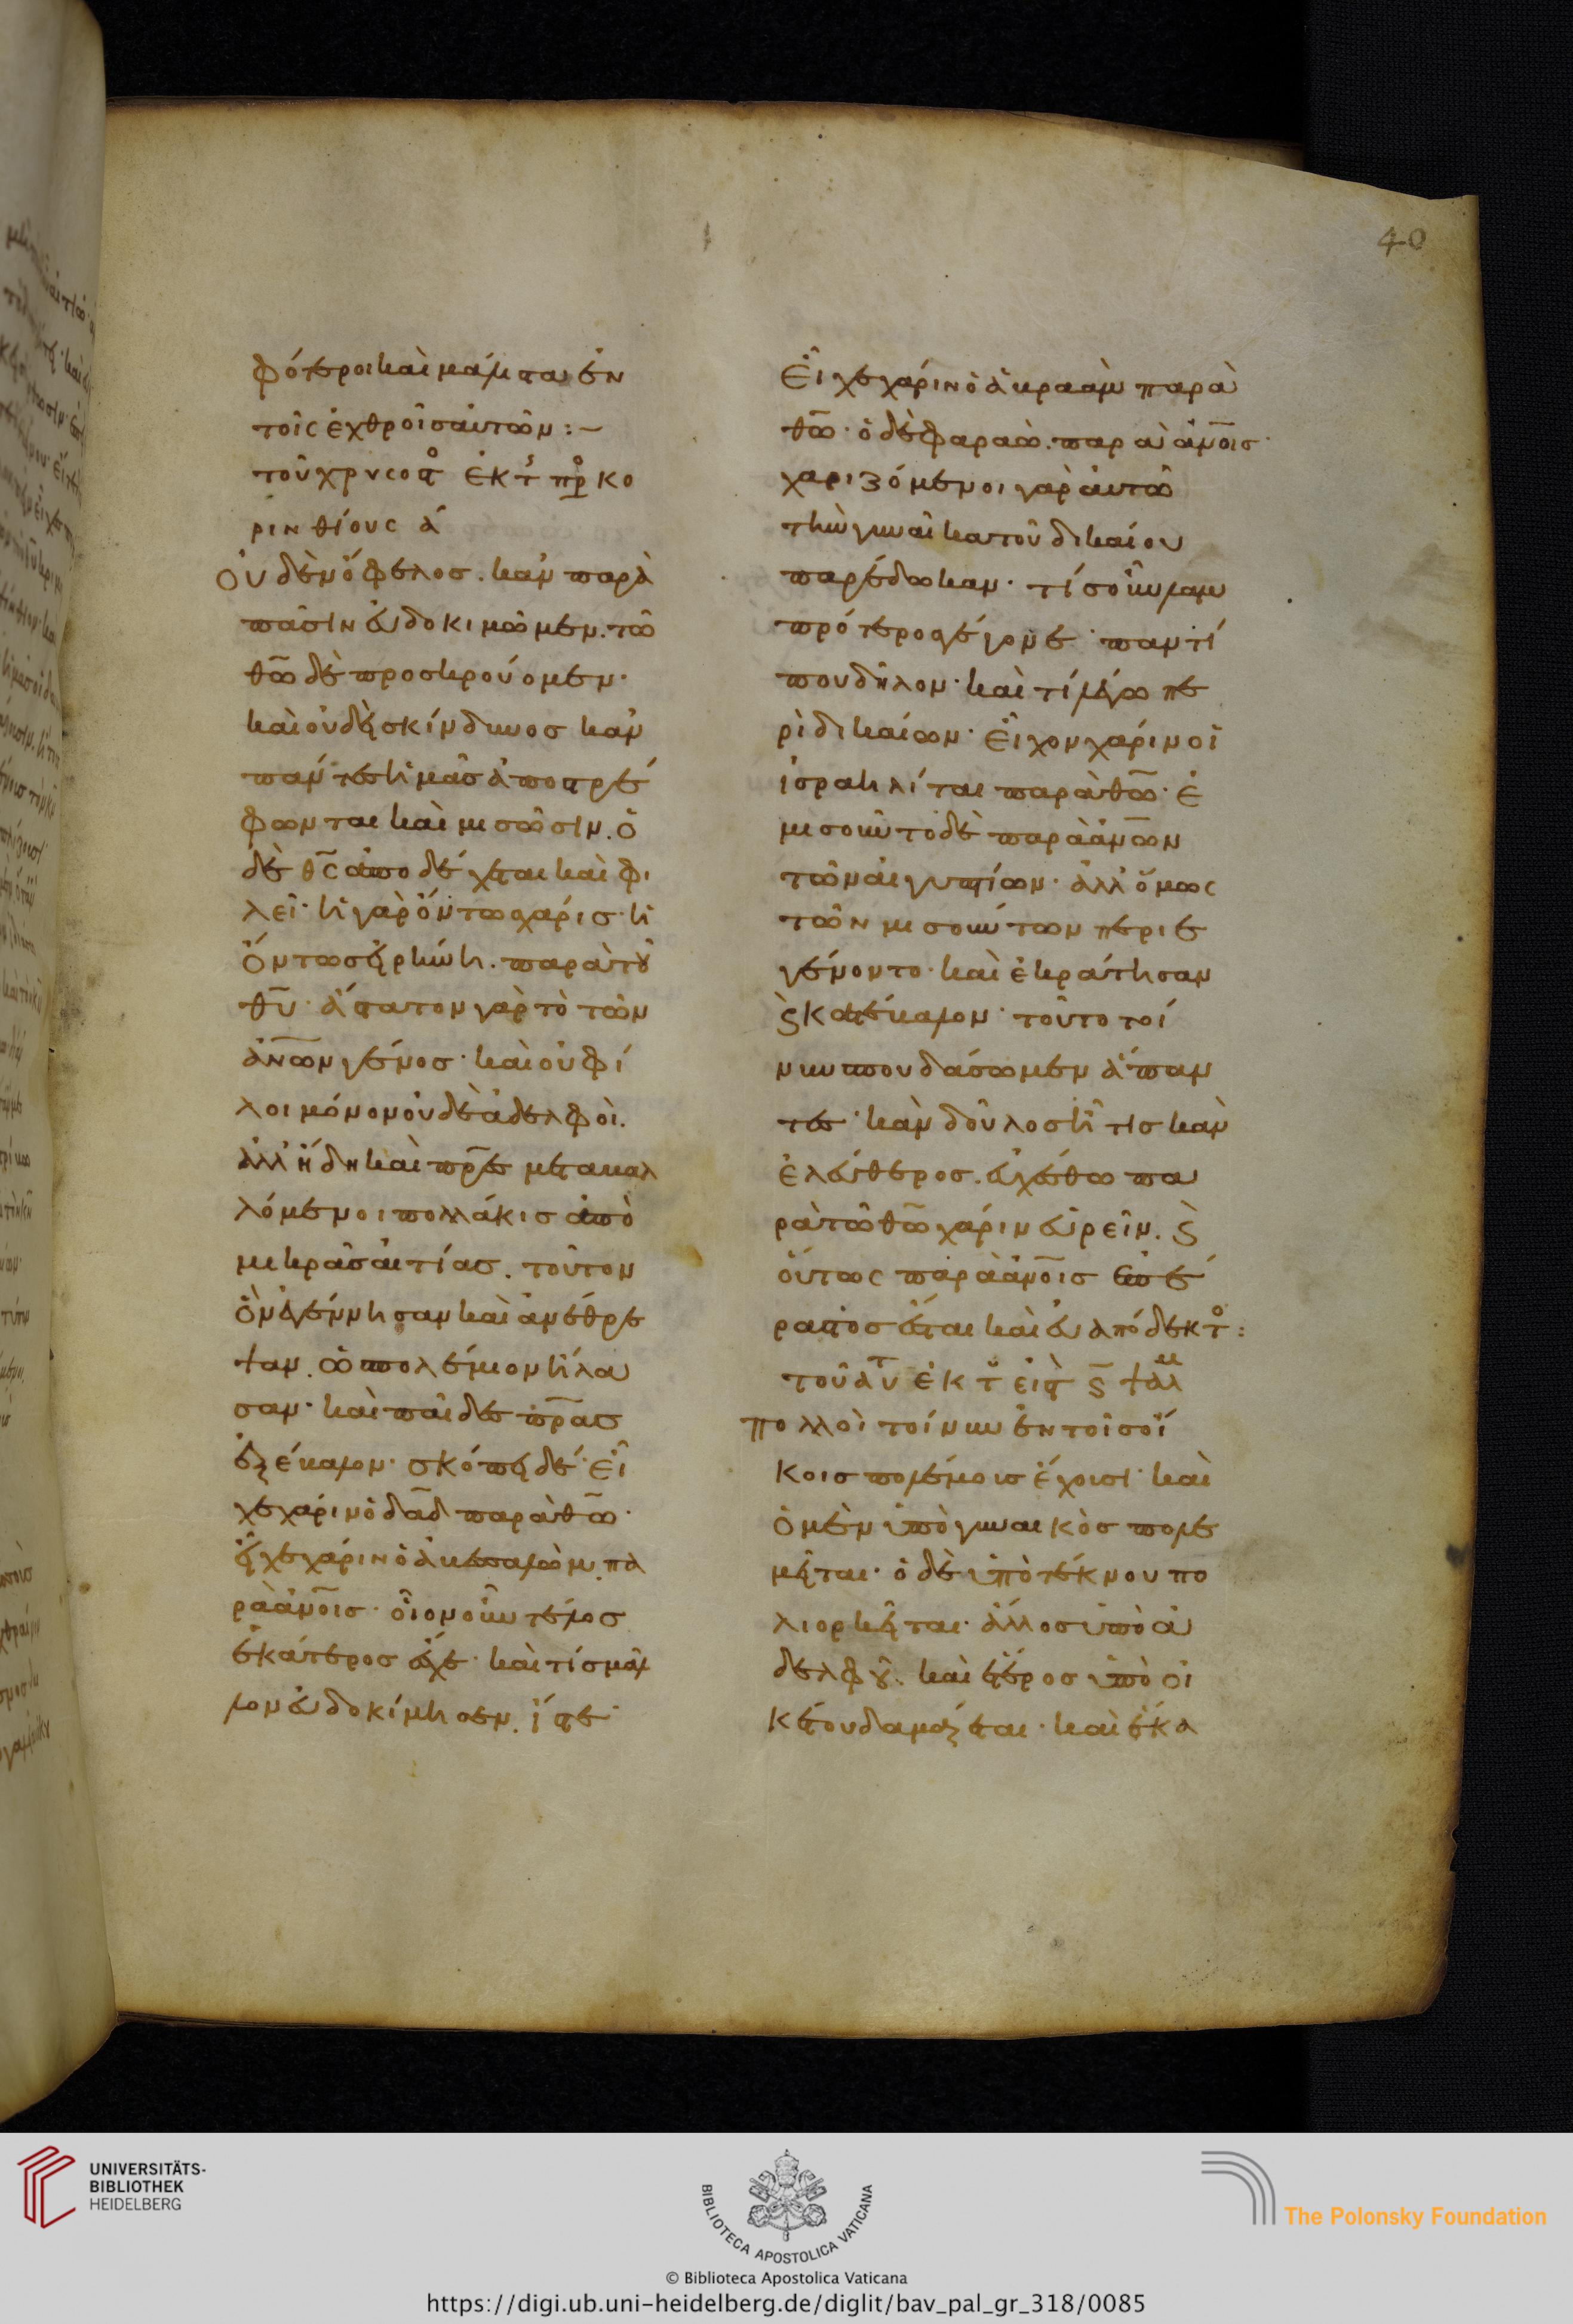 φότεροι καὶ μάλιστα ἐν
τοῖς ἐχθροῖς αὐτῶν :–
τοῦ χρυσοστ ἐκ τ πρ κο
ρινθίους ά
Οὐδὲν ὄφελος. κἂν παρὰ
πᾶσιν εὐδοκιμῶμεν. τῶ
θω̅ δὲ προσκρούομεν·
καὶ οὐδεὶς κίνδυνος κἂν
πάντες ἡμᾶς ἀποστρέ
φωνται καὶ μισῶσιν. ὁ
δὲ θς̅ ἀποδέχεται καὶ φι
λεῖ· ἡ γὰρ ὄντως χάρις· ἡ
ὄντως εἰρήνη. παρὰ τοῦ
θυ̅· ἄστατον γὰρ τὸ τῶν
ἀνω̅ν γένος· καὶ οὐ φί
λοι μόνον οὐδὲ ἀδελφοὶ.
ἀλλ' ἤδη καὶ πρ̅ες μεταβαλ
λόμενοι πολλάκις ἀπὸ
μικρᾶς αἰτίας. τοῦτον
ὃν ἐγέννησαν καὶ ἀνέθρε
ψαν. ὡς πολέμιον ἤλα
σαν· καὶ παῖδες πρ̅ας
ἐξέβαλον· σκόπει δέ· εἶ
χε χάριν ὁ δα̅δ παρὰ θω̅·
εἶχε χάριν ὁ ἀβεσσαλὼμ. πα
ρὰ ἀνο̅ις· οἷον οὖν τέλος
ἑκάτερος ἔσχε· καὶ τίς μᾶλ
λον εὐδοκίμησεν. ἴστε·
Εἶχε χάριν ὁ ἀβραὰμ παρὰ
θω̅· ὁ δὲ φαραὼ. παρὰ ἀνο̅ις·
χαριζόμενοι γὰρ αὐτῶ
τὴν γυναῖκα τοῦ δικαίου
παρέδωκαν· τίς οὖν λαμ
πρότερος γέγονε· παντί
που δῆλον· καὶ τί λέγω πε
ρὶ δικαίων· εἶχον χάριν οἱ
ἰσραηλίται παρὰ θω̅· ἐ
μισοῦντο δὲ παρὰ ἀνω̅ν
τῶν αἰγυπτίων· ἀλλ' ὅμως
τῶν μισούντων περιε
γένοντο· καὶ ἐκράτησαν
ϗ κατέβαλον· τοῦτο τοί
νυν σπουδάσωμεν ἅπαν
τες· κἂν δοῦλος ἦ τις κἂν
ἐλεύθερος. εὐχέσθω πα
ρὰ τῶ θω̅ χάριν εὑρεῖν. ϗ
οὕτως παρὰ ἀνο̅ις ἐπέ
ραστος ἔσται καὶ εὐαπόδεκτ:
τοῦ αυτ ἐκ τ εἰς ϛ ψαλμ
Πολλοὶ τοίνυν ἐν τοῖς οἴ
κοις πολεμίους ἔχουσι· καὶ
ὁ μὲν ὑπὸ γυναικὸς πολε
μεῖται· ὁ δὲ ὑπὸ τέκνου πο
λιορκεῖται· ἄλλος ὑπὸ ἀ
δελφοῦ. καὶ ἕτερος ὑπὸ οἰ
κέτου δαμάζεται· καὶ ἕκα
40
UNIVERSITÄTS-
BIBLIOTHEK
HEIDELBERG
BIBLIOTECA APOSTOLICA VATICANA
© Biblioteca Apostolica Vaticana
The Polonsky Foundation
https://digi.ub.uni-heidelberg.de/diglit/bav_pal_gr_318/0085